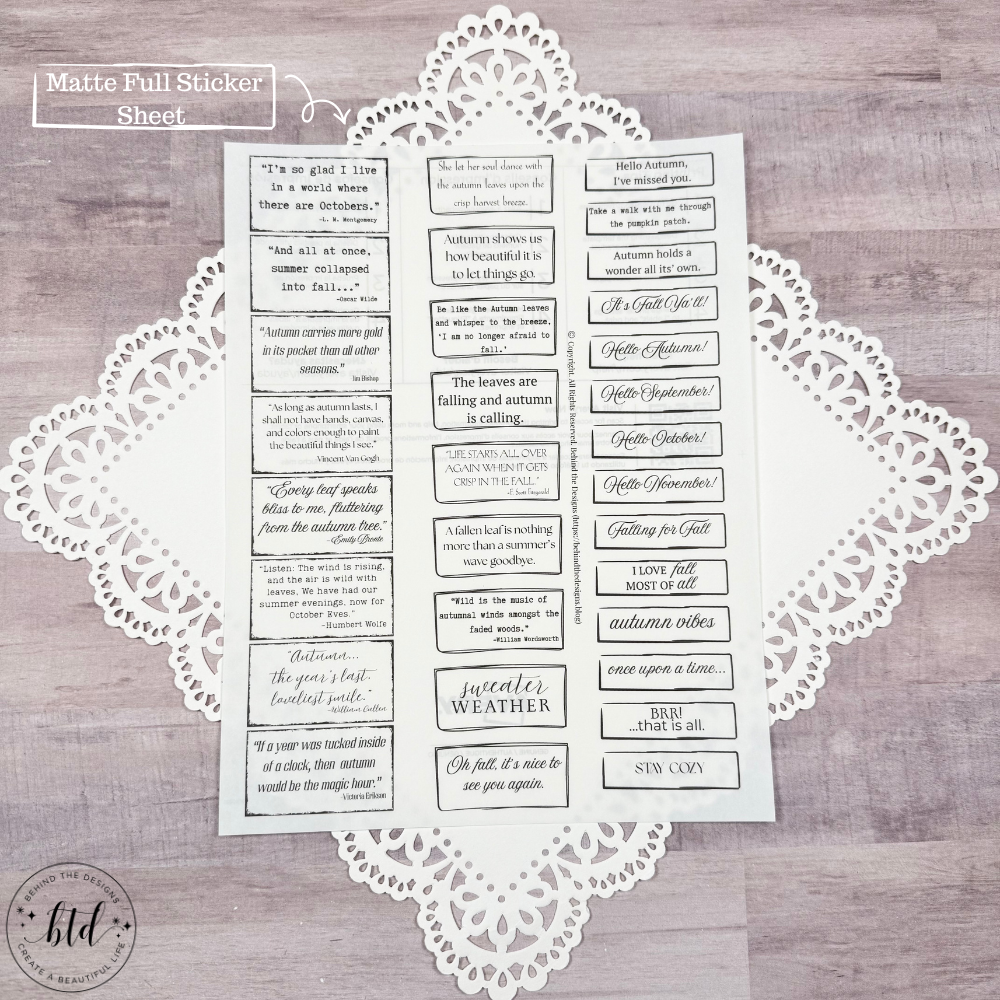 Matte Full Sticker
Sheet
“I’m so glad I live
in a world where
there are Octobers.”
-L. M. Montgomery
“And all at once,
summer collapsed
into fall...”
-Oscar Wilde
“Autumn carries more gold
in its pocket than all other
seasons.”
Jim Bishop
“As long as autumn lasts, I
shall not have hands, canvas,
and colors enough to paint
the beautiful things I see.”
-Vincent Van Gogh
“Every leaf speaks
bliss to me, fluttering
from the autumn tree.”
-Emily Bronte
“Listen: The wind is rising,
and the air is wild with
leaves, We have had our
summer evenings, now for
October Eves.”
-Humbert Wolfe
“Autumn...
the year’s last,
loveliest smile.”
-William Cullen
“If a year was tucked inside
of a clock, then autumn
would be the magic hour.”
-Victoria Erikson
She let her soul dance with
the autumn leaves upon the
crisp harvest breeze.
Autumn shows us
how beautiful it is
to let things go.
Be like the Autumn leaves
and whisper to the breeze,
‘I am no longer afraid to
fall.’
The leaves are
falling and autumn
is calling.
“LIFE STARTS ALL OVER
AGAIN WHEN IT GETS
CRISP IN THE FALL.”
-F. Scott Fitzgerald
A fallen leaf is nothing
more than a summer’s
wave goodbye.
“Wild is the music of
autumnal winds amongst the
faded woods.”
-William Wordsworth
sweater
WEATHER
Oh fall, it’s nice to
see you again.
© Copyright. All Rights Reserved. Behind the Designs (https://behindthedesigns.blog)
Hello Autumn,
I’ve missed you.
Take a walk with me through
the pumpkin patch.
Autumn holds a
wonder all its’ own.
It’s Fall Ya’ll!
Hello Autumn!
Hello September!
Hello October!
Hello November!
Falling for Fall
I LOVE fall
MOST OF all
autumn vibes
once upon a time...
BRR!
...that is all.
STAY COZY
BEHIND THE DESIGNS
btd
CREATE A BEAUTIFUL LIFE